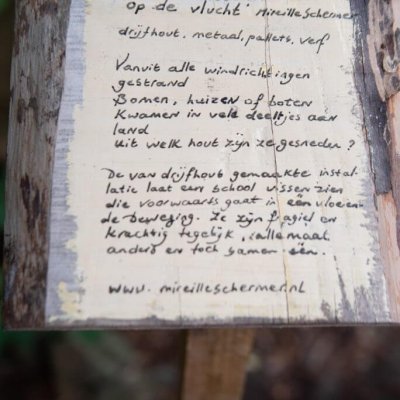 op de vlucht' Mireille Schermer
drijfhout, metaal, pallets, verf
Vanuit alle windrichtingen
gestrand
Bomen, huizen of boten
Kwamen in vele deeltjes aan
land
Uit welk hout zijn ze gesneden?
De van drijfhout gemaakte instal-
latie laat een school vissen zien
die voorwaarts gaat in één vloeien-
de beweging. Ze zijn fragiel en
krachtig tegelijk, allemaal
anders en toch samen één.
www.mireilleschermer.nl